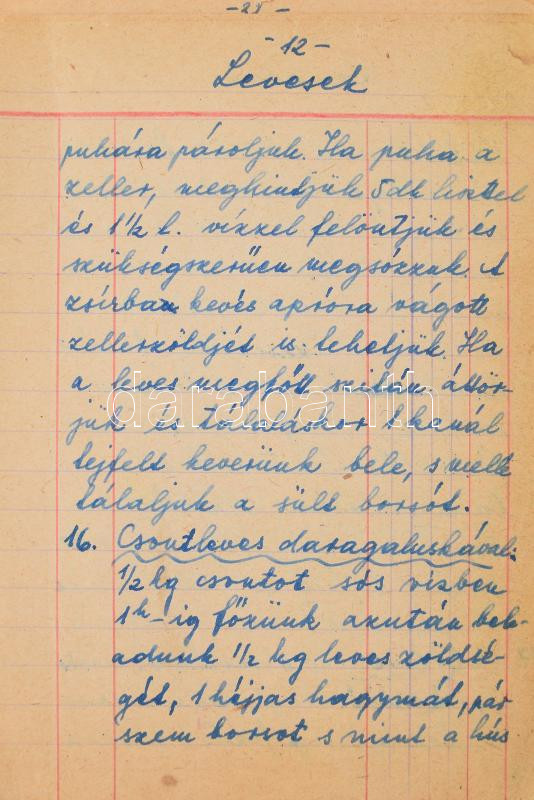 - 25 -
- 12 -
Levesek
puhára pároljuk. Ha puha a
zeller, meghintjük 5 dk liszttel
és 1 1/2 l. vízzel felöntjük és
szükségszerűen megsózzuk. A
zsírban kevés apróra vágott
zellerzöldjét is tehetjük. Ha
a leves megfőtt szitán áttör-
jük és tálaláskor 1 kanál
tejfelt keverünk bele, s mellé
tálaljuk a sült borsót.
16. Csontleves daragaluskával:
1/2 kg csontot sós vízben
1h-ig főzünk azután bele-
adunk 1/2 kg leves zöldsé-
gét, 1 héjjas hagymát, pár
szem borsot s mint a hús
darabanth